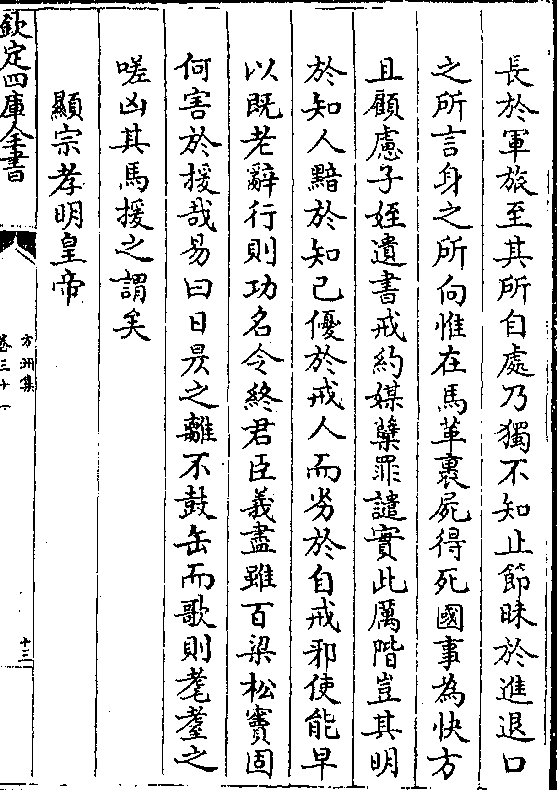 長於軍旅至其所自處乃獨不知止節昧於進退口
之所言身之所向惟在馬革裹屍得死國事為快方
且顧慮子姪遺書戒約媒櫱罪譴實此厲階豈其明
於知人黯於知己優於戒人而劣於自戒邪使能早
以既老辭行則功名令終君臣義盡雖百梁松竇固
何害於援哉易曰日昃之離不鼓缶而歌則耄耋之
嗟凶其馬援之謂矣
顯宗孝明皇帝
欽定四庫全書
方洲集
卷三十一
十三